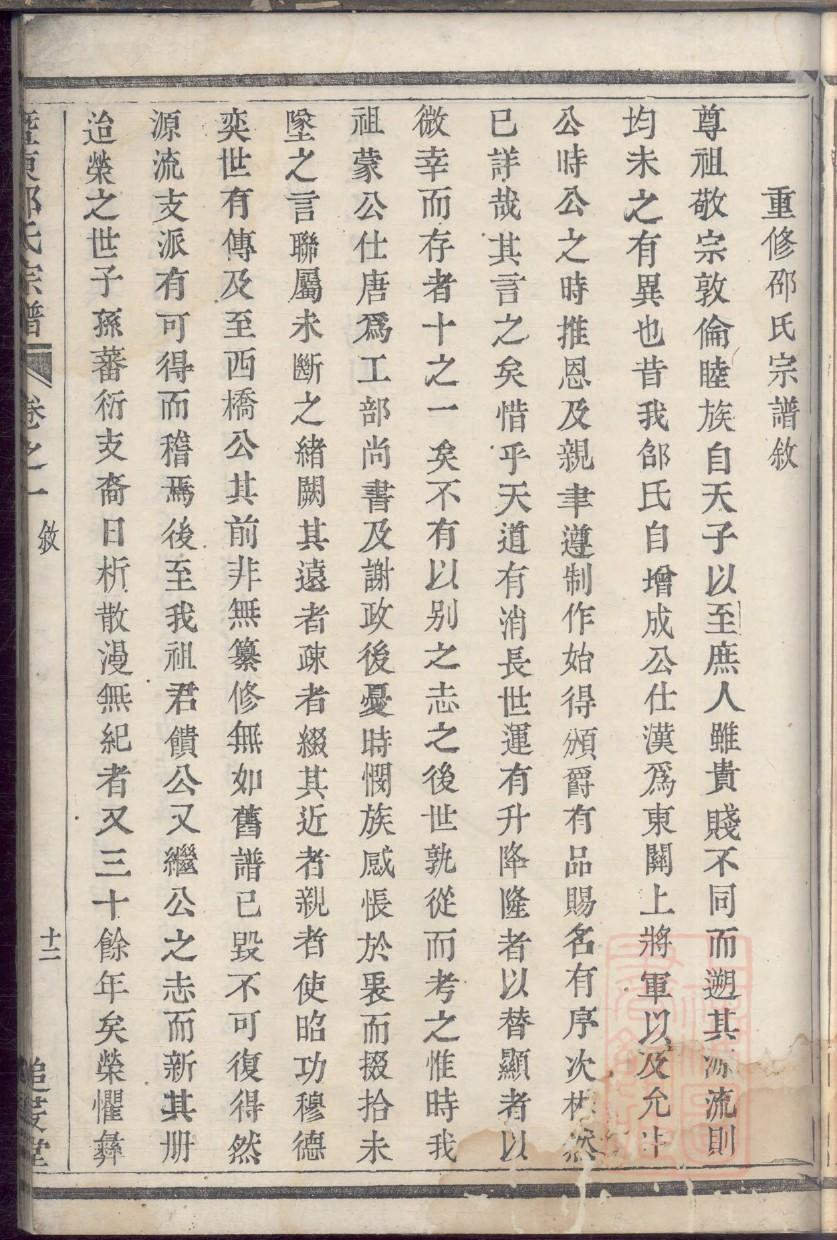 重修邵氏宗譜敘
尊祖敬宗敦倫睦族自天子以至庶人雖貴賤不同而遡其源流則
均未之有異也昔我邵氏自增成公仕漢爲東關上將軍以及允中
公時公之時推恩及親聿遵制作始得頒爵有品賜名有序次林然
已詳哉其言之矣惜乎天道有消長世運有升降隆者以替顯者以
微幸而存者十之一矣不有以别之志之後世孰從而考之惟時我
祖蒙公仕唐爲工部尚書及謝政後憂時憫族感悵於裏而掇拾未
墜之言聯屬未斷之緒闕其遠者疎者綴其近者親者使昭功穆德
奕世有傳及至西橋公其前非無纂修無如舊譜已毀不可復得然
源流支派有可得而稽焉後至我祖君饋公又繼公之志而新其册
迨榮之世子孫蕃衍支裔日析散漫無紀者又三十餘年矣榮懼彝
暨東邵氏宗譜 卷之一 敘 十二 追遠堂